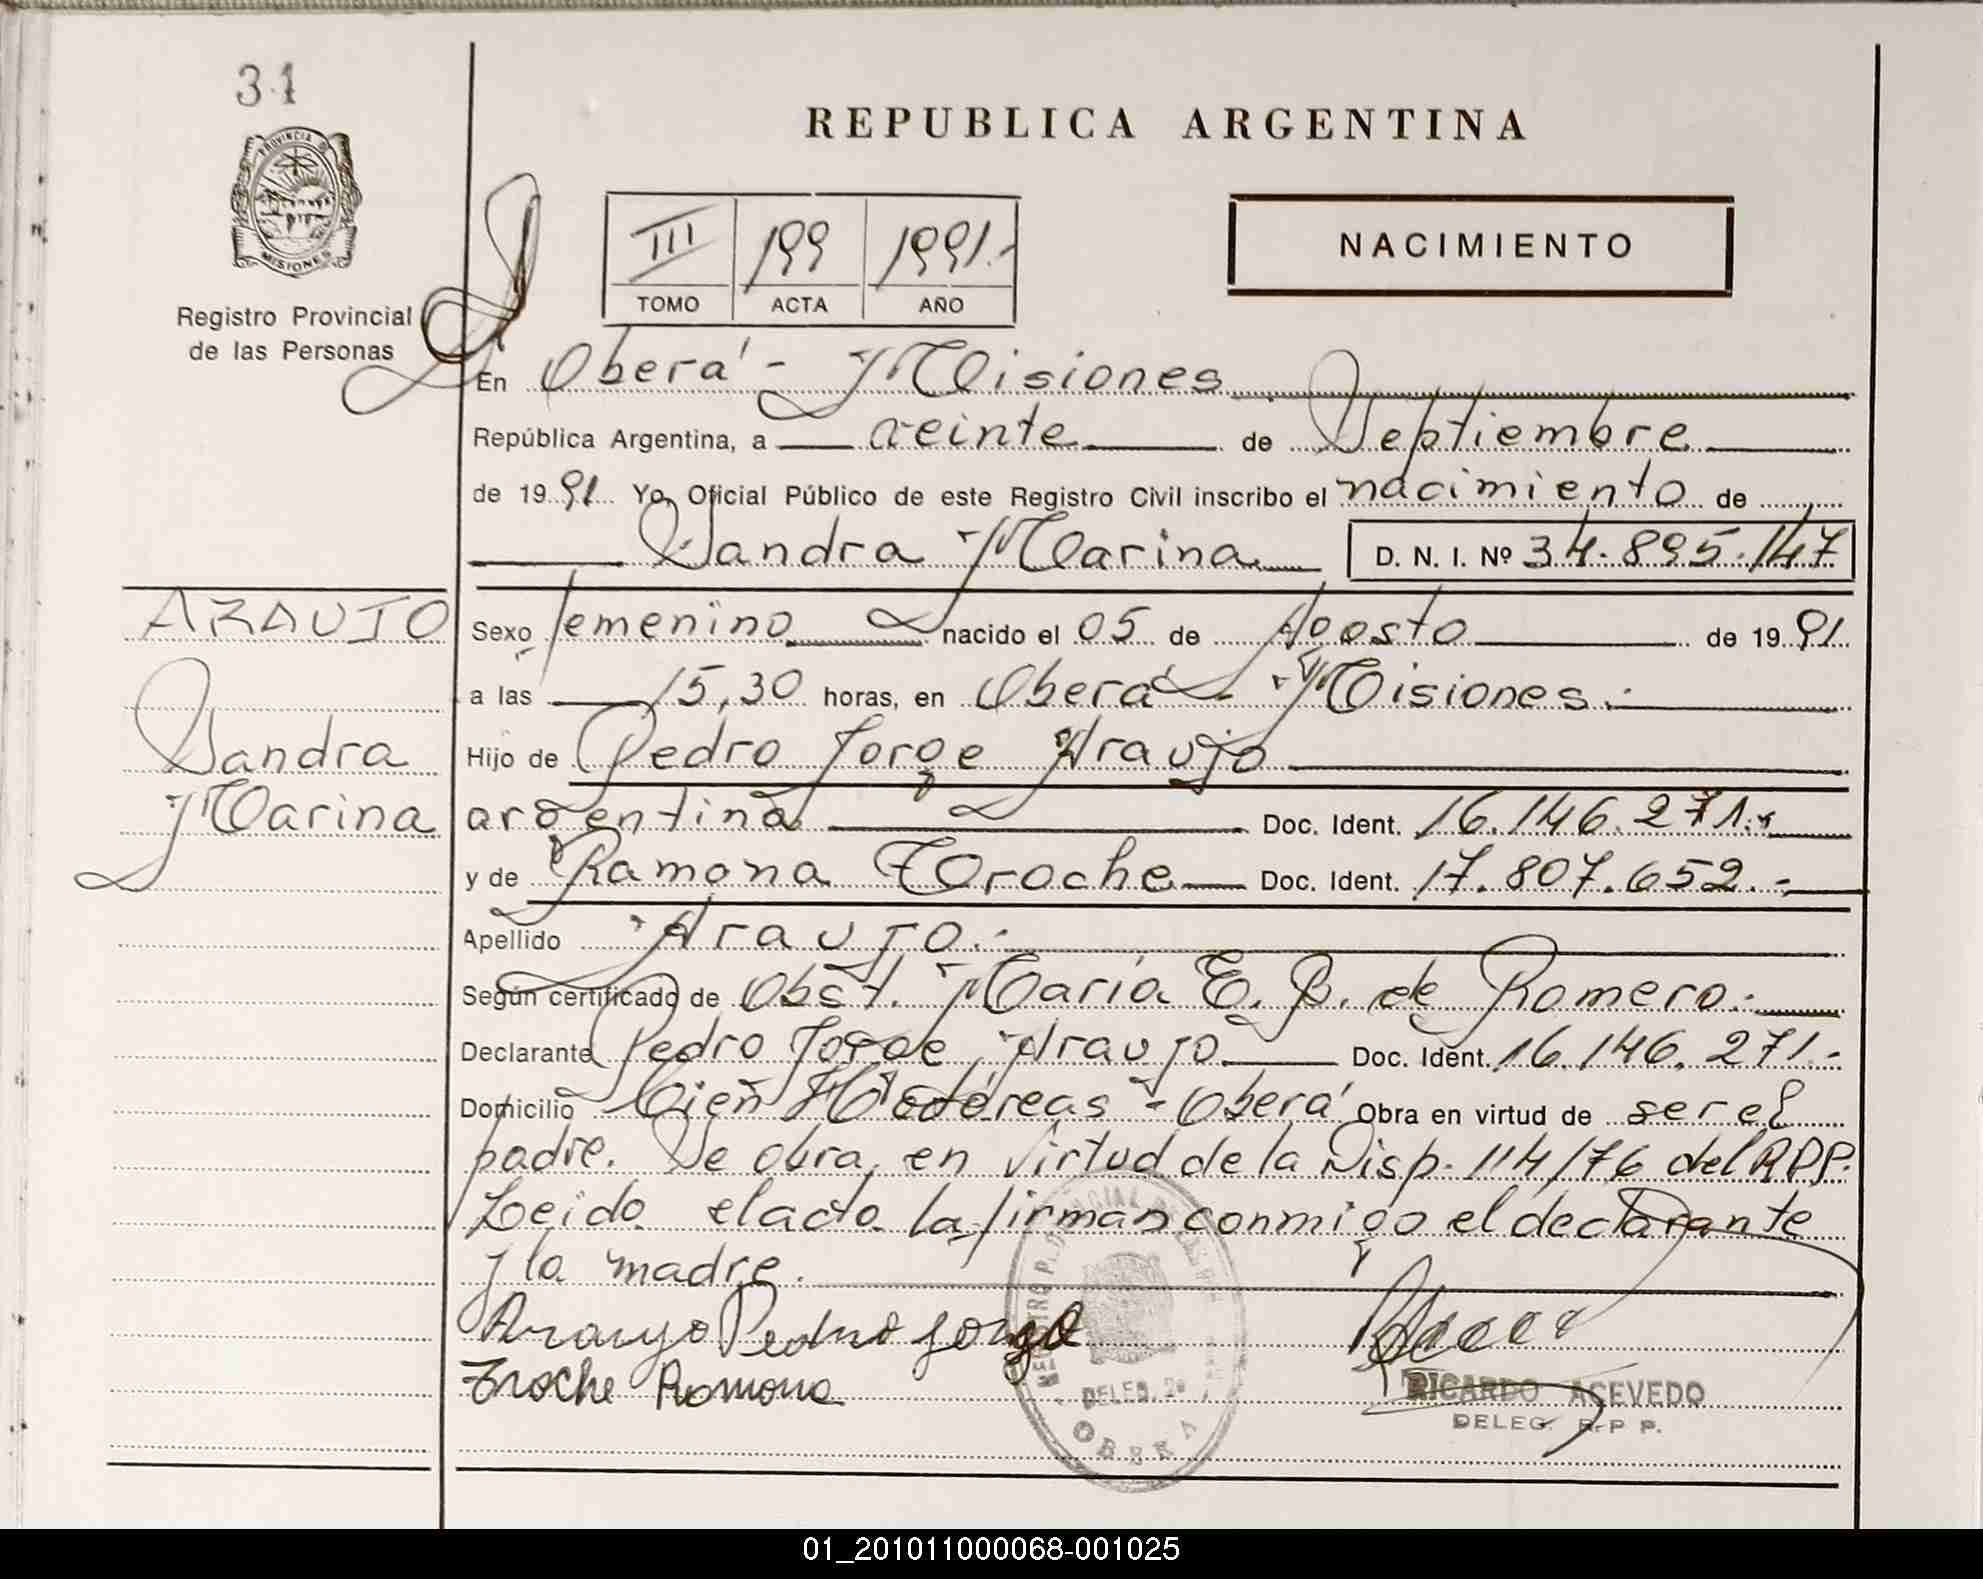 31
REPUBLICA ARGENTINA
PROVINCIA DE
MISIONES
Registro Provincial
de las Personas
III 199 1991.-
TOMO ACTA AÑO
NACIMIENTO
En Oberá - Misiones
República Argentina, a veinte de Septiembre
de 1991 Yo, Oficial Público de este Registro Civil inscribo el nacimiento de
Sandra Marina D. N. I. Nº 34.895.147
ARAUJO
Sandra
Marina
Sexo femenino nacido el 05 de Agosto de 1991
a las 15,30 horas, en Oberá - Misiones.-
Hijo de Pedro Jorge Araujo
argentina Doc. Ident. 16.146.271.-
y de Ramona Troche Doc. Ident. 17.807.652.-
Apellido Araujo.-
Según certificado de Obst. María E. B. de Romero.-
Declarante Pedro Jorge Araujo Doc. Ident. 16.146.271.-
Domicilio Cien Hectáreas - Oberá Obra en virtud de ser el
padre. Se obra, en virtud de la Disp. 114/76 del R.P.P.
Leída el acta la firman conmigo el declarante
y la madre.
Araujo Pedro Jorge
Troche Ramona
DELEG.
OBERA
RICARDO ACEVEDO
DELEG. R.P P.
01_201011000068-001025